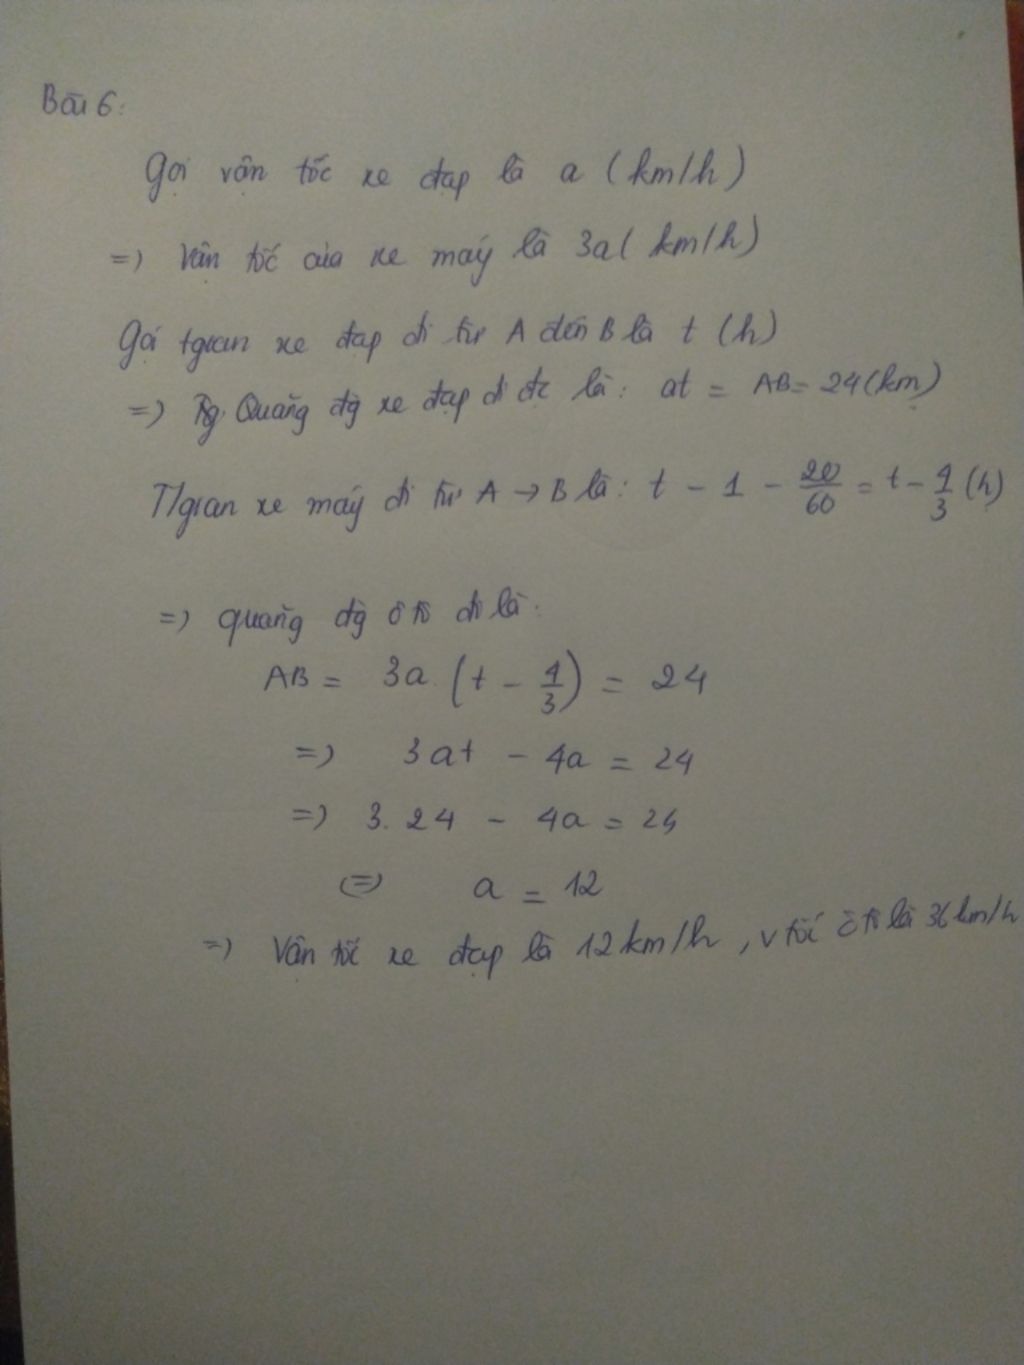 Bài 6:
Gọi vận tốc xe đạp là a (km/h)
=) Vận tốc của xe máy là 3a( km/h)
Gọi tgian xe đạp đi từ A đến B là t (h)
=) Quãng đg xe đạp đi đc là: at = AB = 24 (km)
T/gian xe máy đi từ A → B là: t - 1 - 20/60 = t - 4/3 (h)
=) quãng đg ô tô đi là:
AB = 3a. (t - 4/3) = 24
=) 3at - 4a = 24
=) 3. 24 - 4a = 24
(=) a = 12
=) Vận tốc xe đạp là 12 km/h, v tốc ô tô là 36 km/h